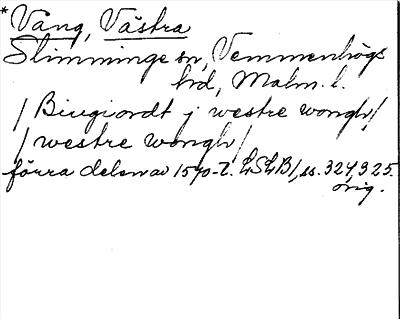 * Vång, Västra
Slimminge sn, Vemmenhögs
hd, Malm. l.
/ Biugiordt j westre wongh /
/ westre wongh /
förra delen av 1570-t. LSLB 1, ss. 324, 325.
orig.